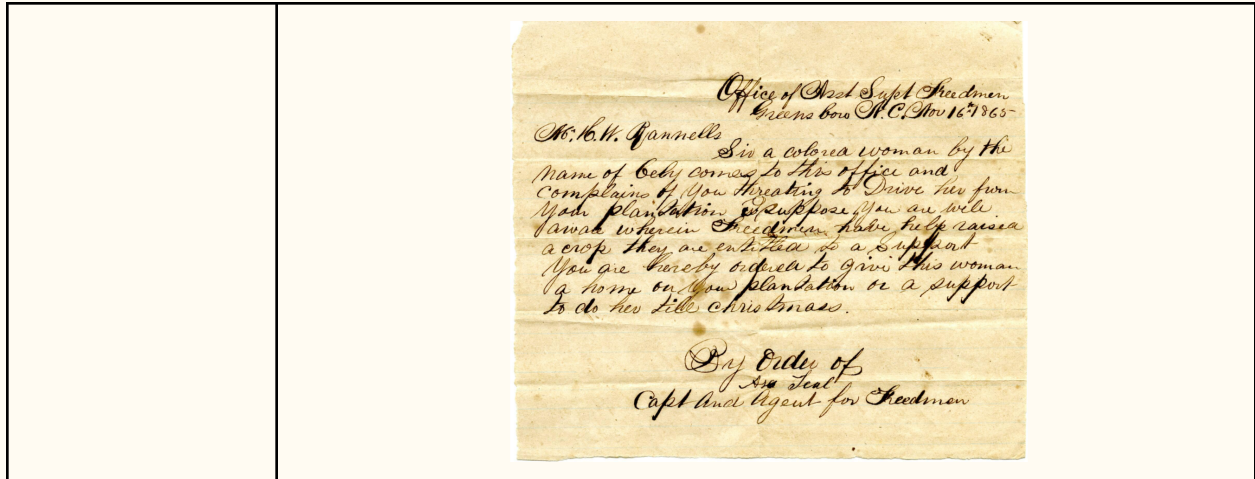 Office of Asst Supt Freedmen
Greensboro N.C. Nov 16th 1865
Mr. H. W. Rannells
Sir a colored woman by the
name of Cely comes to this office and
complains of you threating to Drive her from
your plantation I suppose you are well
aware wherein Freedmen have help raised
a crop they are entitled to a Support
You are hereby ordered to give this woman
a home on your plantation or a support
to do her till christmass.
By Order of
Asa Teal
Capt And Agent for Freedmen